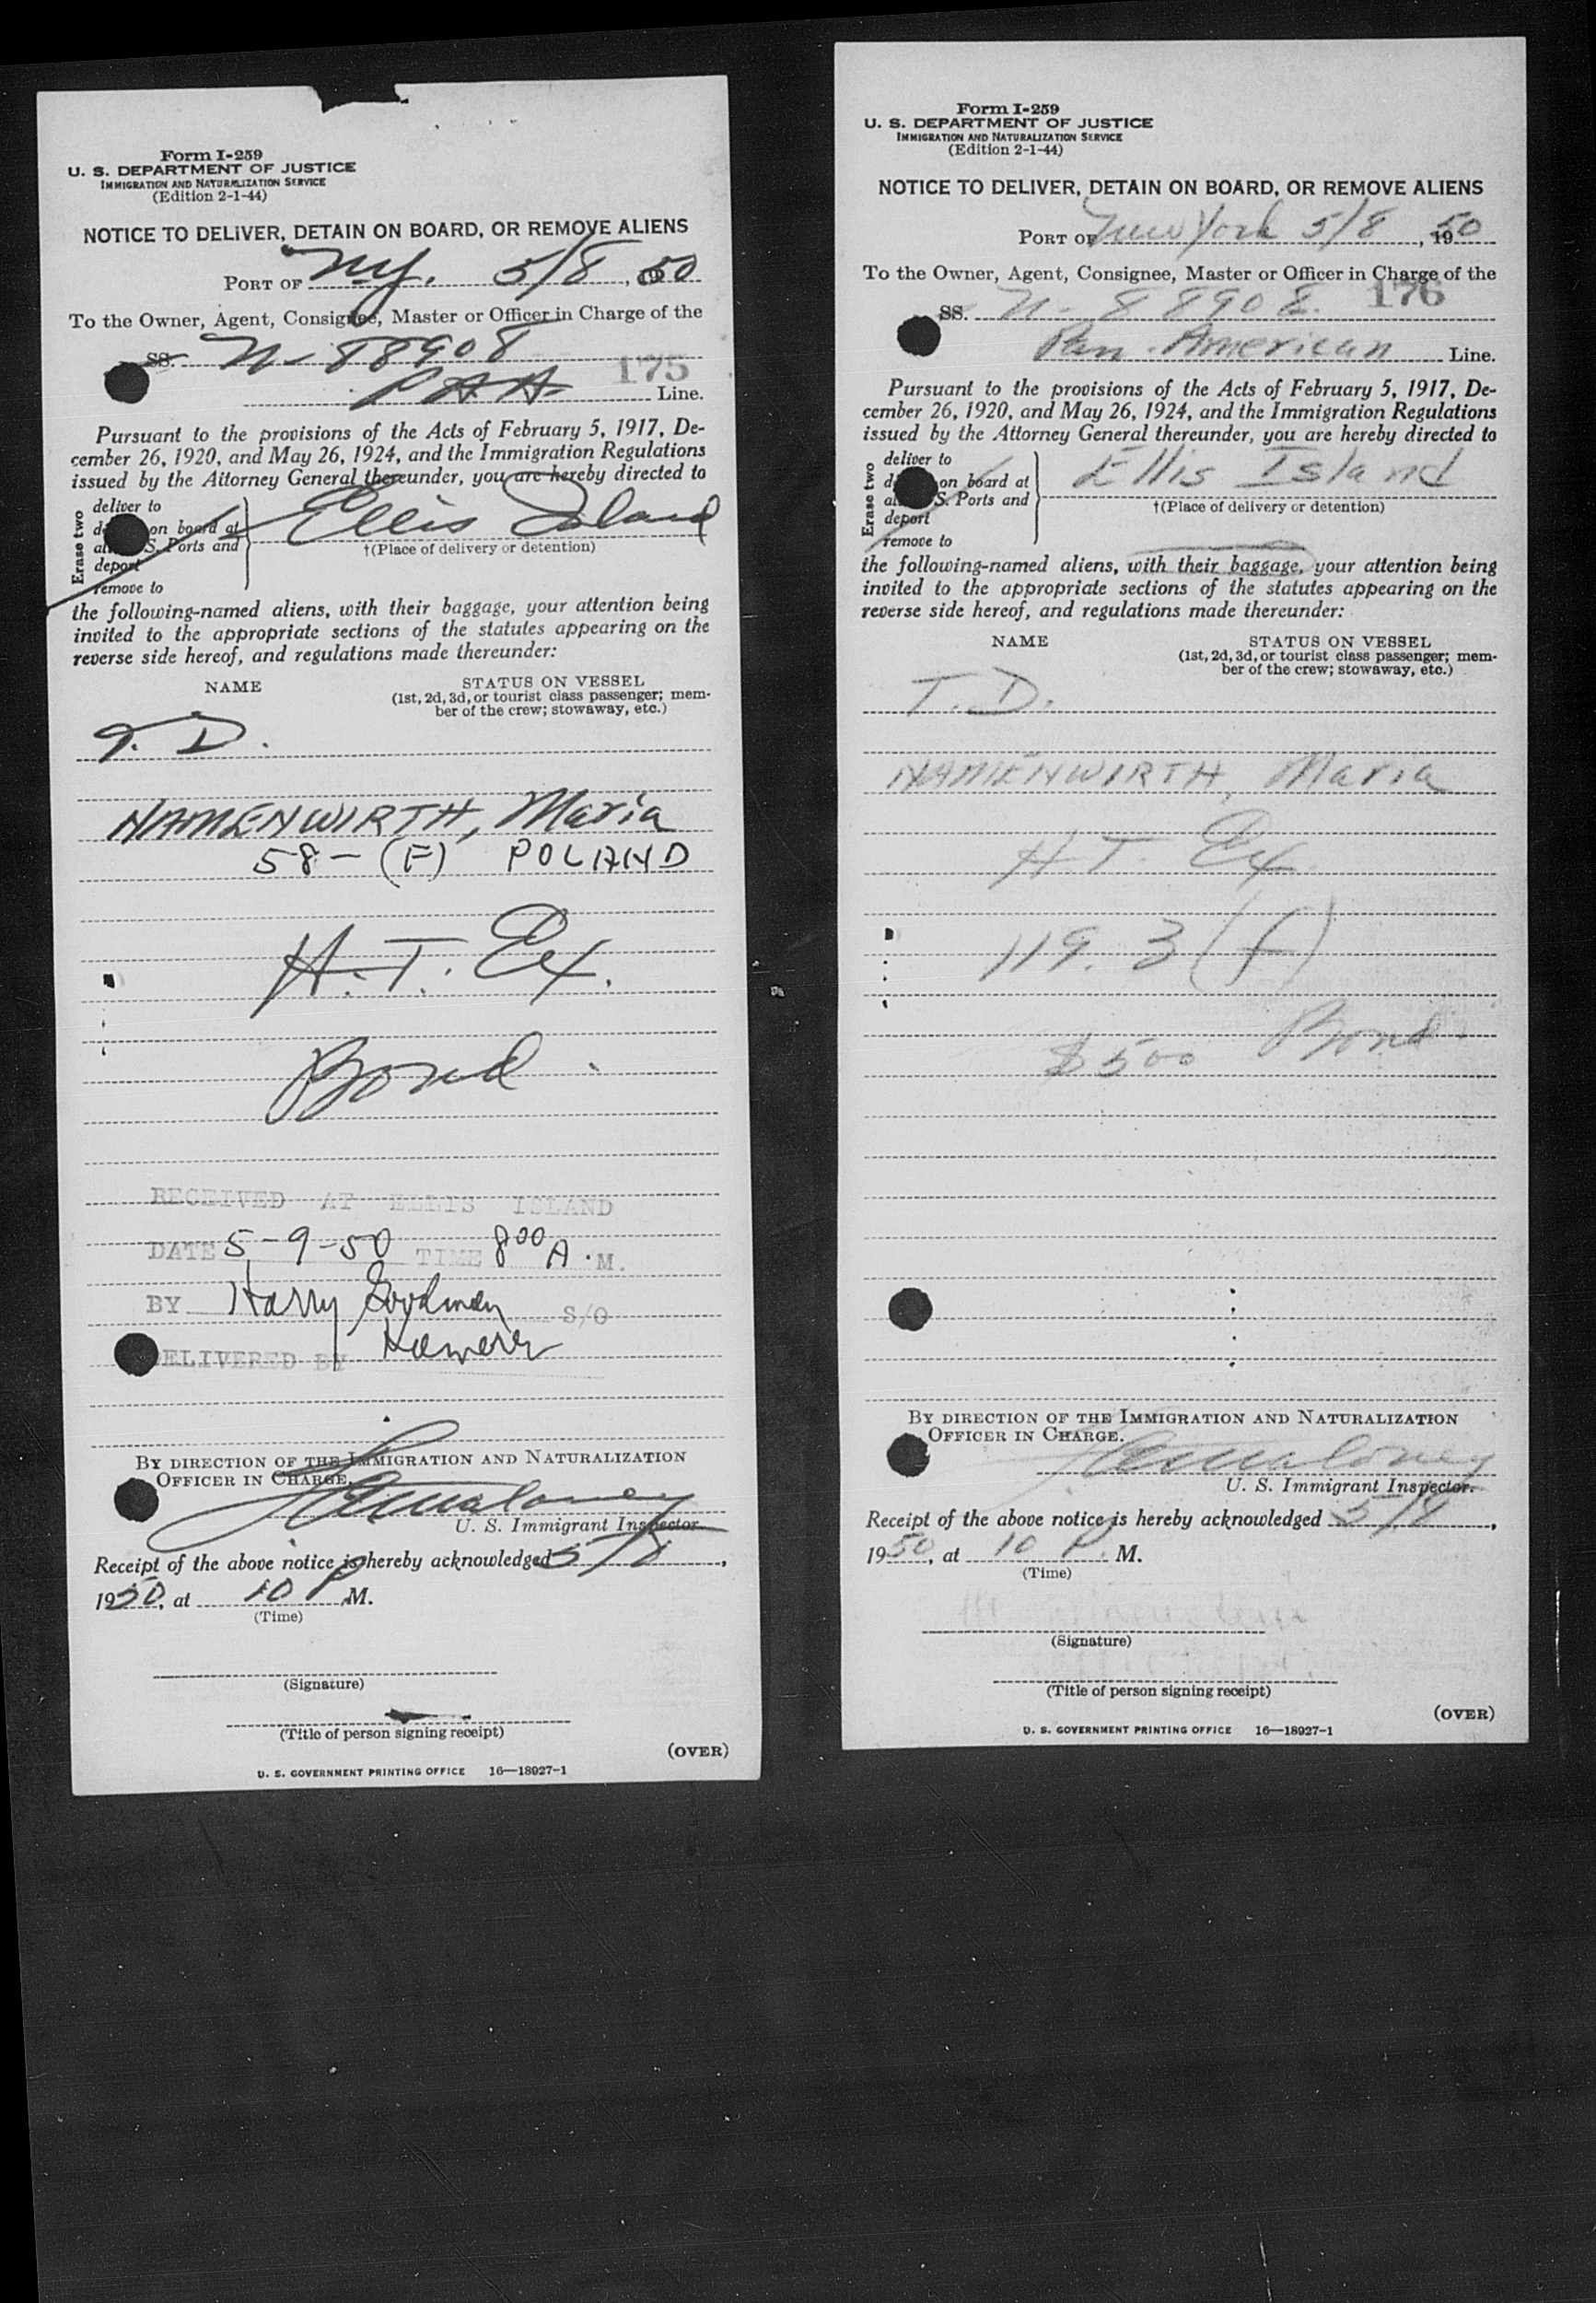 Form I-259
U. S. DEPARTMENT OF JUSTICE
IMMIGRATION AND NATURALIZATION SERVICE
(Edition 2-1-44)
NOTICE TO DELIVER, DETAIN ON BOARD, OR REMOVE ALIENS
PORT OF N.Y. 5/8, 1950
To the Owner, Agent, Consignee, Master or Officer in Charge of the
SS. N-88908
175
PAA Line.
Pursuant to the provisions of the Acts of February 5, 1917, De-
cember 26, 1920, and May 26, 1924, and the Immigration Regulations
issued by the Attorney General thereunder, you are hereby directed to
Erase two
deliver to
on board at
S. Ports and
deport
remove to
Ellis Island
†(Place of delivery or detention)
the following-named aliens, with their baggage, your attention being
invited to the appropriate sections of the statutes appearing on the
reverse side hereof, and regulations made thereunder:
NAME
STATUS ON VESSEL
(1st, 2d, 3d, or tourist class passenger; mem-
ber of the crew; stowaway, etc.)
T. D.
NAMENWIRTH, Maria
58- (F) POLAND
H.T. Ex.
Bond
RECEIVED AT ELLIS ISLAND
DATE 5-9-50 TIME 8 00 A.M.
BY Harry Goodman S/O
DELIVERED BY
BY DIRECTION OF THE IMMIGRATION AND NATURALIZATION
OFFICER IN CHARGE.
Maloney
U. S. Immigrant Inspector.
Receipt of the above notice is hereby acknowledged 5/8,
1950, at 10 P.M.
(Time)
(Signature)
(Title of person signing receipt)
(OVER)
U. S. GOVERNMENT PRINTING OFFICE 16—18927-1
Form I-259
U. S. DEPARTMENT OF JUSTICE
IMMIGRATION AND NATURALIZATION SERVICE
(Edition 2-1-44)
NOTICE TO DELIVER, DETAIN ON BOARD, OR REMOVE ALIENS
PORT OF New York 5/8, 1950
To the Owner, Agent, Consignee, Master or Officer in Charge of the
176
SS. N-88908.
Pan-American Line.
Pursuant to the provisions of the Acts of February 5, 1917, De-
cember 26, 1920, and May 26, 1924, and the Immigration Regulations
issued by the Attorney General thereunder, you are hereby directed to
Erase two
deliver to
on board at
S. Ports and
deport
remove to
Ellis Island
†(Place of delivery or detention)
the following-named aliens, with their baggage, your attention being
invited to the appropriate sections of the statutes appearing on the
reverse side hereof, and regulations made thereunder:
NAME
STATUS ON VESSEL
(1st, 2d, 3d, or tourist class passenger; mem-
ber of the crew; stowaway, etc.)
T. D.
NAMENWIRTH, Maria
H.T. Ex
119. 3 (f)
$500 Bond.
BY DIRECTION OF THE IMMIGRATION AND NATURALIZATION
OFFICER IN CHARGE.
Maloney
U. S. Immigrant Inspector.
Receipt of the above notice is hereby acknowledged 5/8,
1950, at 10 P. M.
(Time)
(Signature)
(Title of person signing receipt)
(OVER)
U. S. GOVERNMENT PRINTING OFFICE 16—18927-1